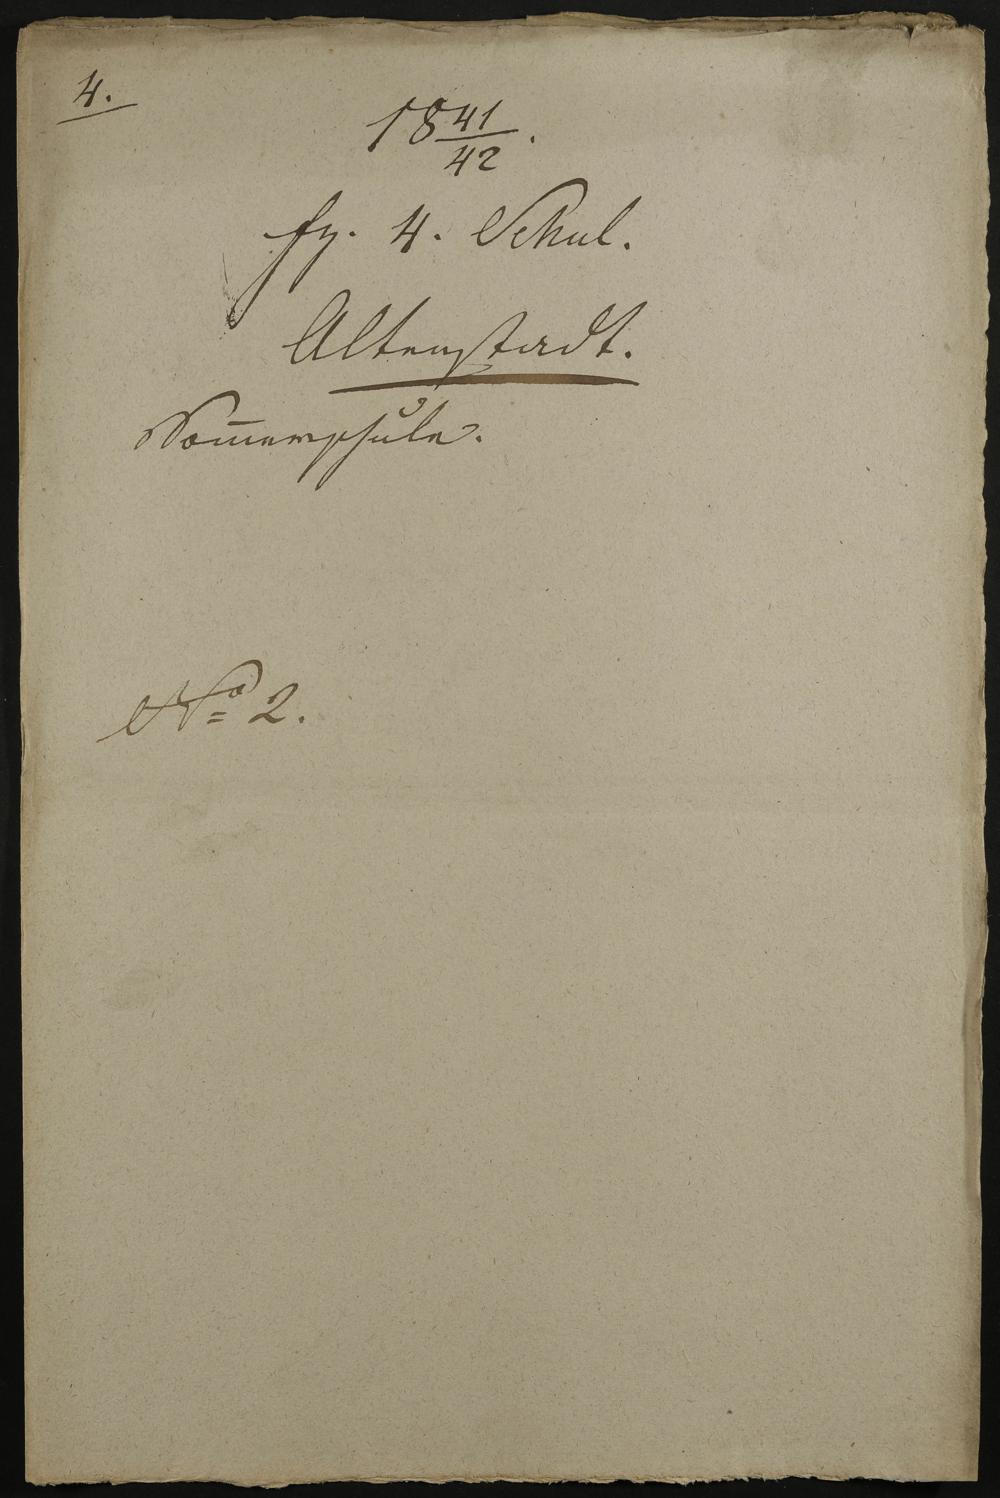 4.
18 41/42.
fz. 4. Schul.
Altenstadt.
Som̅erschule.
No 2.